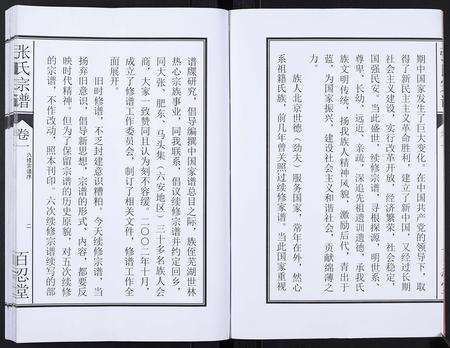 期中国家发生了巨大变化，在中国共产党的领导下，取
得了新民主主义革命胜利，建立了新中国，又经过长期
社会主义建设，实行改革开放，经济繁荣，社会稳定，
国强民安。当此盛世，续修宗谱，寻根探源，明世系，
尊卑、长幼、远近、亲疏，深追先祖遗训遗德，承我氏
族文明传统，扬我族人精神风貌，激励后代，青出于
蓝，为国家振兴，建设社会主义和谐社会，贡献绵薄之
力。
族人北京世德（劲夫）服务国家，常年在外，然心
系祖籍氏族，前几年曾关照过续修家谱，当此国家重视
谱牒研究，倡导编撰中国家谱总目之际，族侄芜湖世林
热心宗族事业，同我联系，倡议续修宗谱并约定回乡，
同大张、肥东、马头集（六安地区）三十多名族人会
商，大家一致赞同且认为刻不容缓。二〇〇二年十月，
成立了修谱工作委员会，制订了相关文件，修谱工作全
面展开。
旧时修谱，不乏封建意识糟粕，今天续修宗谱，当
扬弃旧意识，倡导新思想，宗谱的形式、内容，都要反
映时代精神，但为了保留宗谱的历史原貌，对五次续修
的宗谱，不作改动，照本刊印，六次续修宗谱续写的部
张氏宗谱
卷一
六修宗谱序
百忍堂